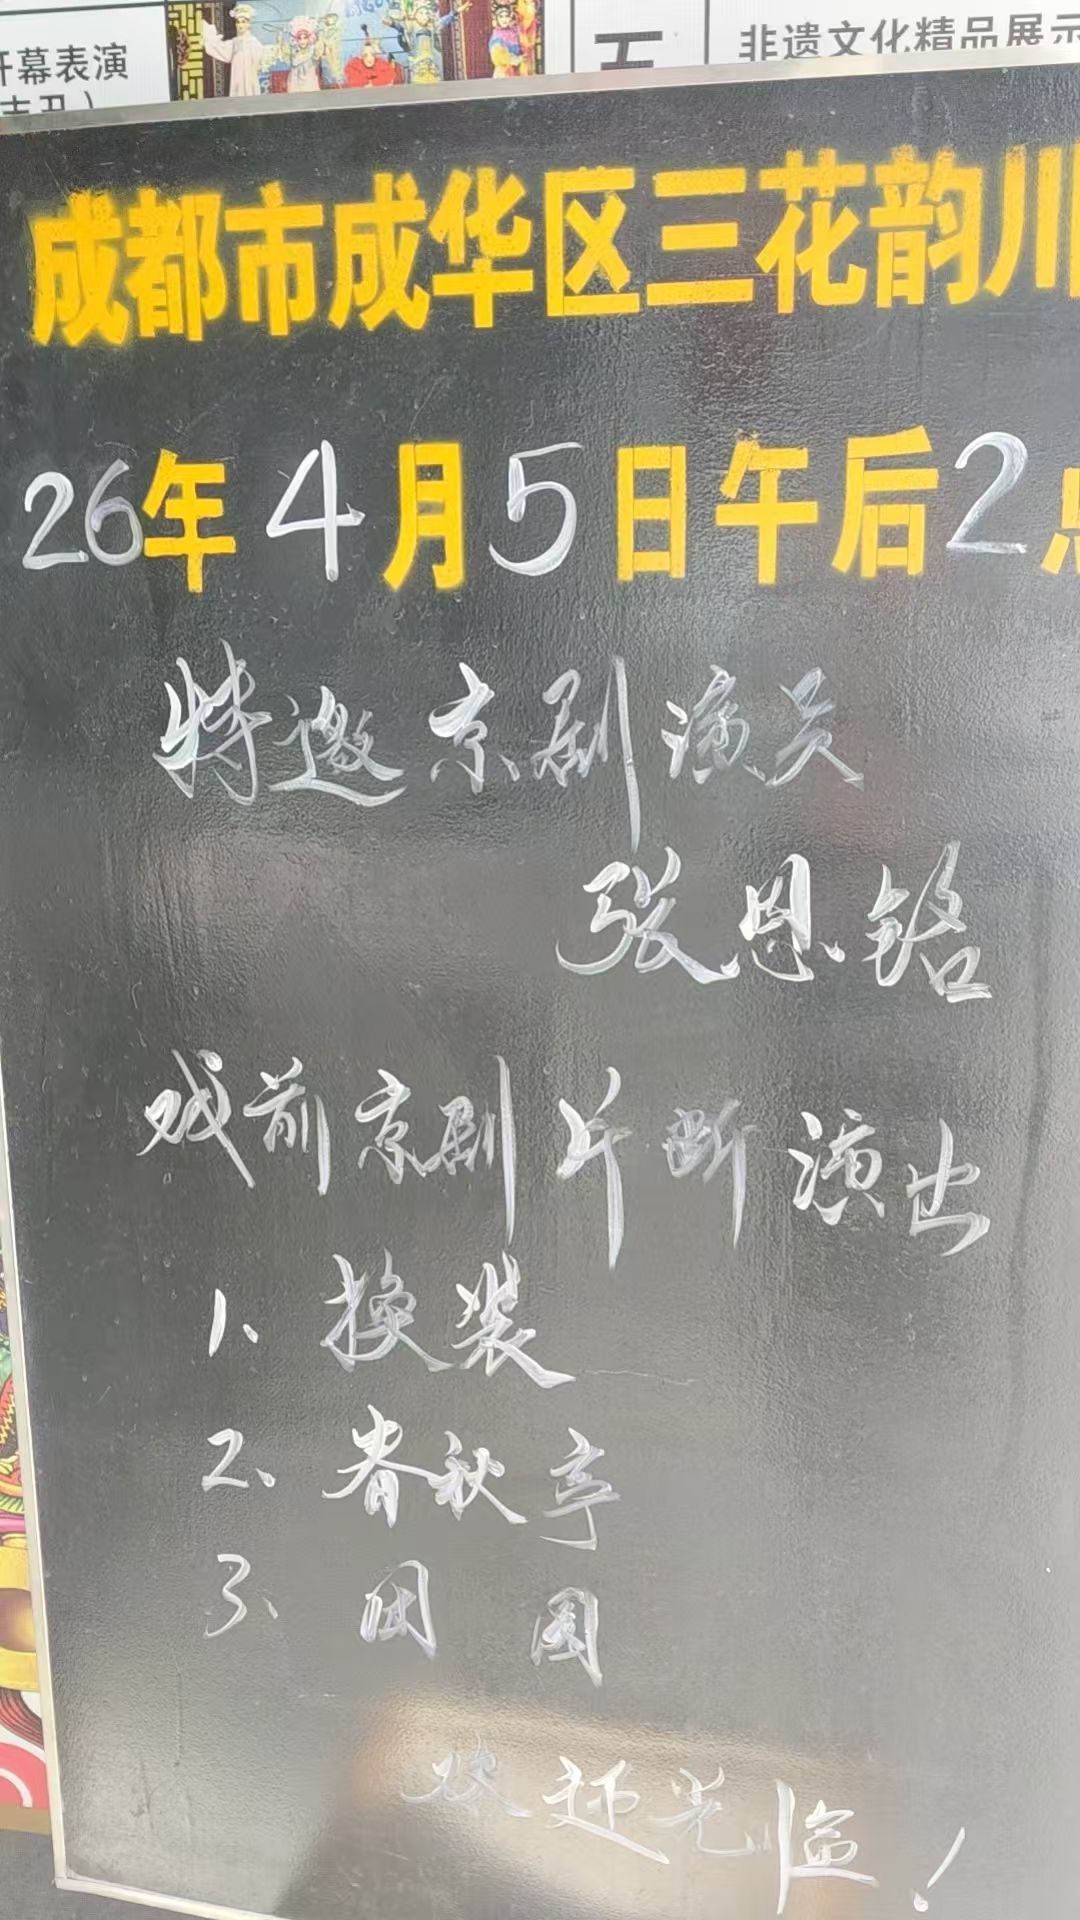 开幕表演
五
非遗文化精品展示
成都市成华区三花韵川
26年4月5日午后2点
特邀京剧演员
张恩铭
戏前京剧片断演出
1、换装
2、春秋亭
3、团圆
欢迎光临!